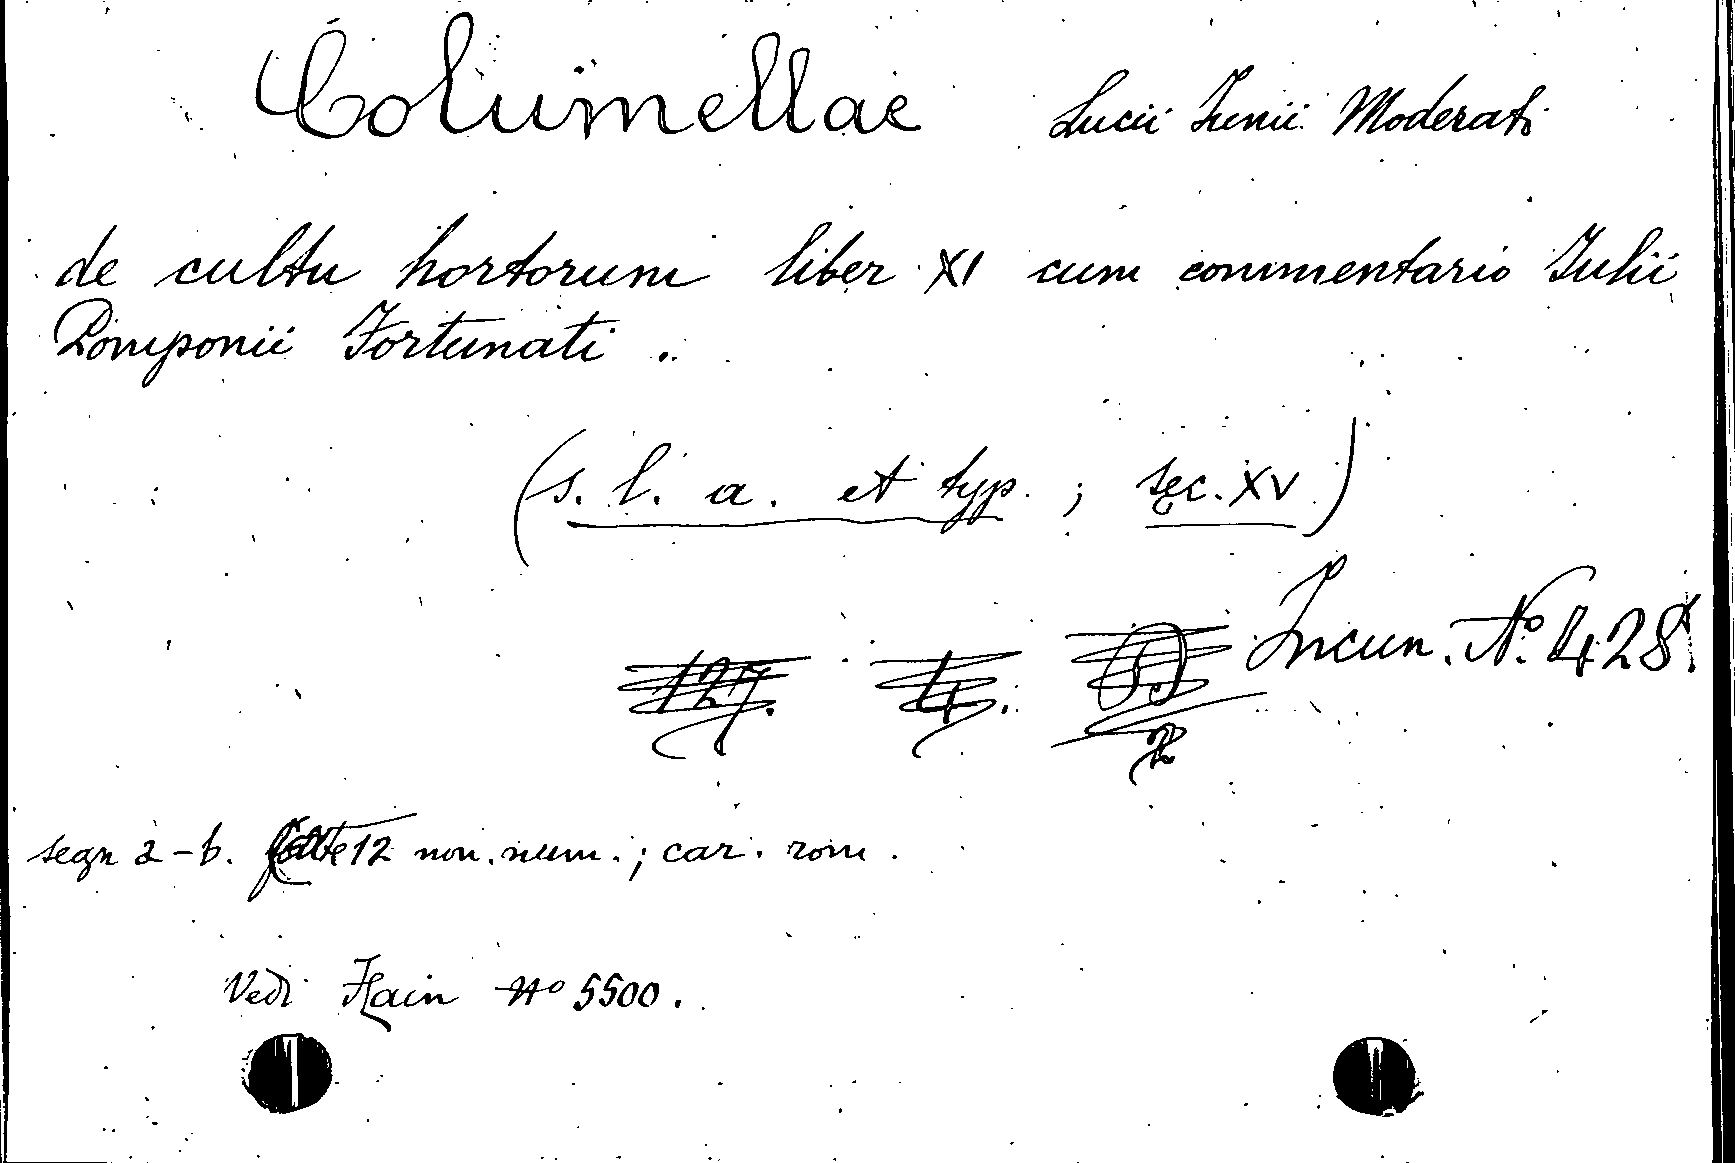 Columellae Lucii Iunii Moderati
de cultu hortorum liber XI cum commentario Iulii
Pomponii Fortunati.
(s. l. a. et typ.; sec. XV)
Incun. No. 428.
127. 4.
segn a-b. 12 non. num.; car. rom.
Vedi Hain No 5500.